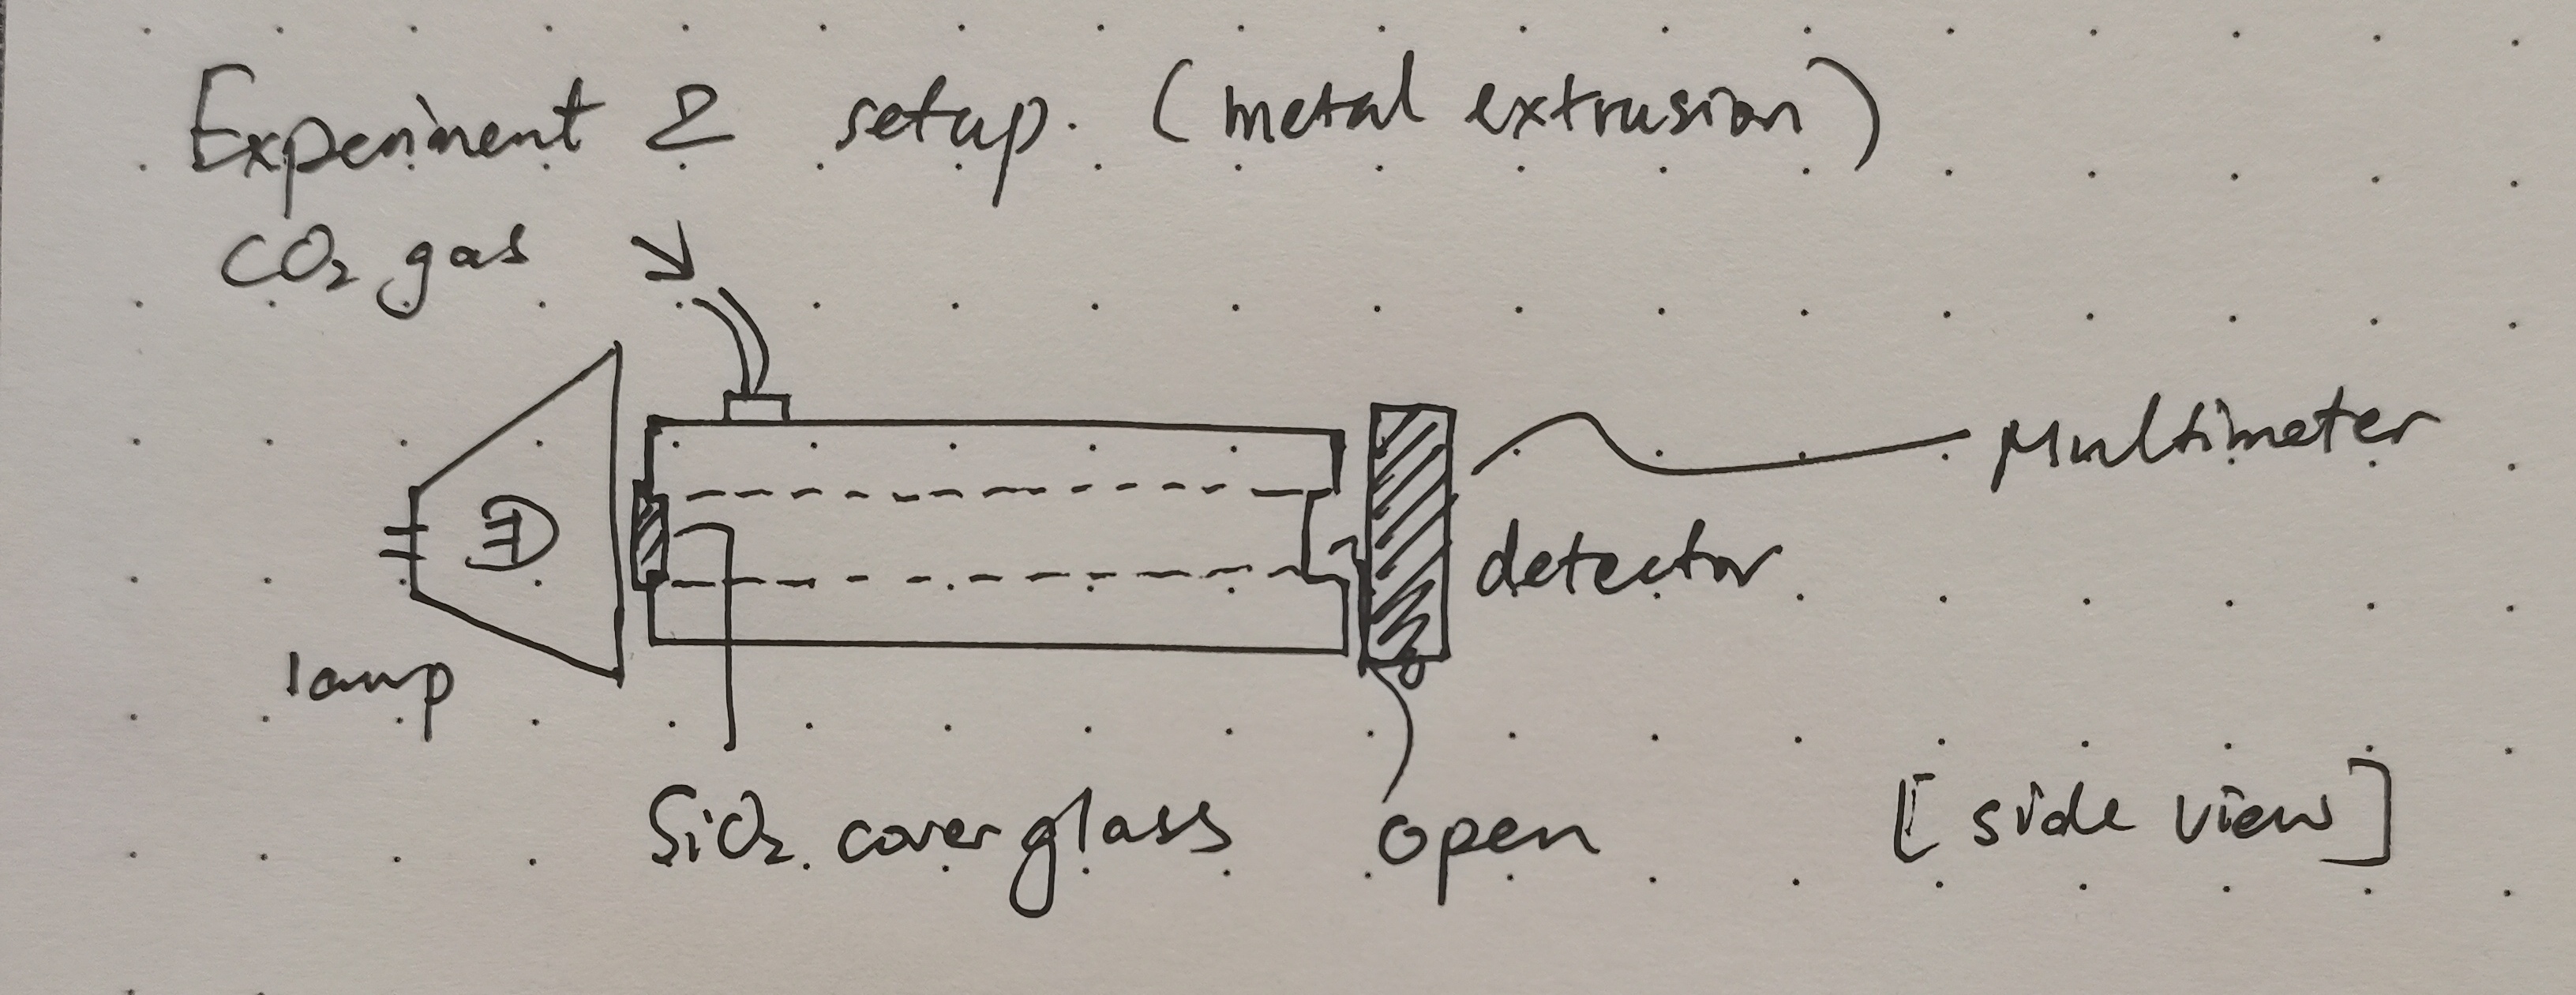 Experiment 2 setup. (metal extrusion)
CO₂ gas
Multimeter
detector
lamp
SiO₂ cover glass
open
[side view]